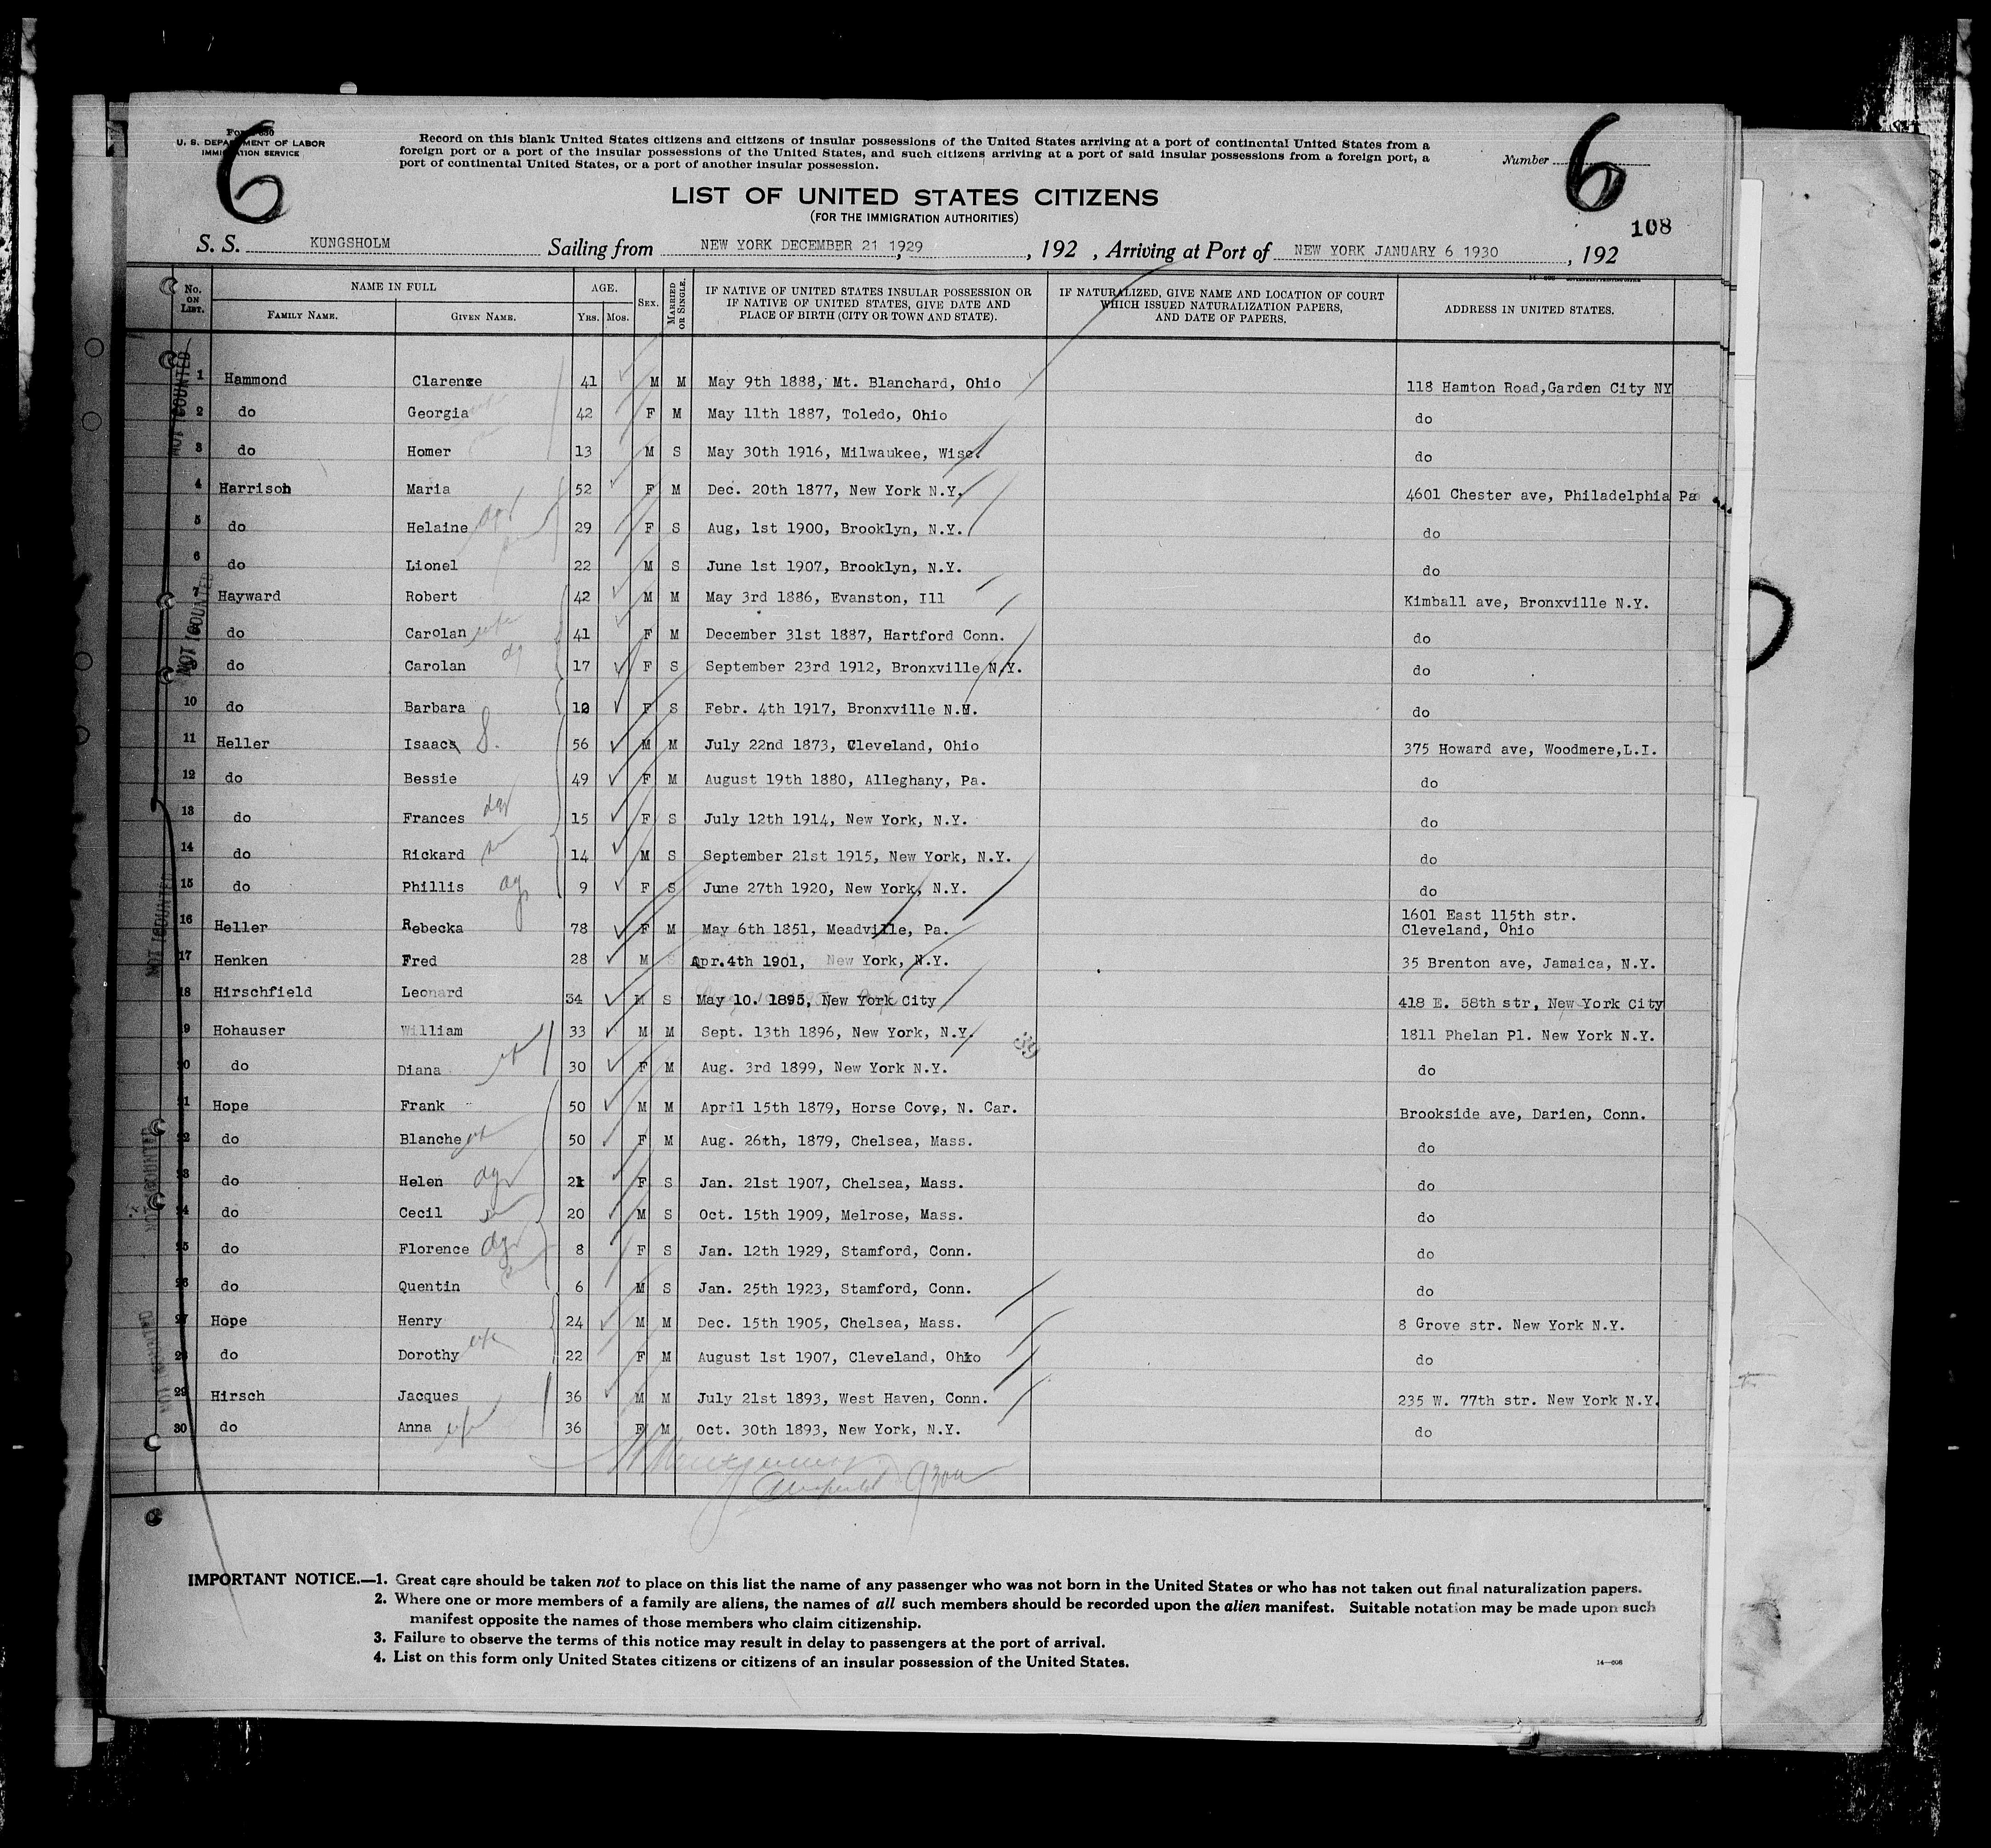 6
Form 630
U. S. DEPARTMENT OF LABOR
IMMIGRATION SERVICE
Record on this blank United States citizens and citizens of insular possessions of the United States arriving at a port of continental United States from a
foreign port or a port of the insular possessions of the United States, and such citizens arriving at a port of said insular possessions from a foreign port, a
port of continental United States, or a port of another insular possession.
Number 6
LIST OF UNITED STATES CITIZENS
(FOR THE IMMIGRATION AUTHORITIES)
108
S. S. KUNGSHOLM Sailing from NEW YORK DECEMBER 21 1929, 192 , Arriving at Port of NEW YORK JANUARY 6 1930, 192
No. ON LIST. NAME IN FULL FAMILY NAME. GIVEN NAME. AGE. YRS. MOS. SEX. MARRIED OR SINGLE. IF NATIVE OF UNITED STATES INSULAR POSSESSION OR IF NATIVE OF UNITED STATES, GIVE DATE AND PLACE OF BIRTH (CITY OR TOWN AND STATE). IF NATURALIZED, GIVE NAME AND LOCATION OF COURT WHICH ISSUED NATURALIZATION PAPERS, AND DATE OF PAPERS. ADDRESS IN UNITED STATES.
1 Hammond Clarence 41 M M May 9th 1888, Mt. Blanchard, Ohio 118 Hamton Road,Garden City NY
2 do Georgia 42 F M May 11th 1887, Toledo, Ohio do
3 do Homer 13 M S May 30th 1916, Milwaukee, Wisc. do
4 Harrison Maria 52 F M Dec. 20th 1877, New York N.Y. 4601 Chester ave, Philadelphia Pa
5 do Helaine 29 F S Aug, 1st 1900, Brooklyn, N.Y. do
6 do Lionel 22 M S June 1st 1907, Brooklyn, N.Y. do
7 Hayward Robert 42 M M May 3rd 1886, Evanston, Ill Kimball ave, Bronxville N.Y.
8 do Carolan 41 F M December 31st 1887, Hartford Conn. do
9 do Carolan 17 F S September 23rd 1912, Bronxville N.Y. do
10 do Barbara 12 F S Febr. 4th 1917, Bronxville N.Y. do
11 Heller Isaac S. 56 M M July 22nd 1873, Cleveland, Ohio 375 Howard ave, Woodmere,L.I.
12 do Bessie 49 F M August 19th 1880, Alleghany, Pa. do
13 do Frances 15 F S July 12th 1914, New York, N.Y. do
14 do Rickard 14 M S September 21st 1915, New York, N.Y. do
15 do Phillis 9 F S June 27th 1920, New York, N.Y. do
16 Heller Rebecka 78 F M May 6th 1851, Meadville, Pa. 1601 East 115th str. Cleveland, Ohio
17 Henken Fred 28 M S Apr.4th 1901, New York, N.Y. 35 Brenton ave, Jamaica, N.Y.
18 Hirschfield Leonard 34 M S May 10. 1895, New York City 418 E. 58th str, New York City
19 Hohauser William 33 M M Sept. 13th 1896, New York, N.Y. 1811 Phelan Pl. New York N.Y.
20 do Diana 30 F M Aug. 3rd 1899, New York N.Y. do
21 Hope Frank 50 M M April 15th 1879, Horse Cove, N. Car. Brookside ave, Darien, Conn.
22 do Blanche 50 F M Aug. 26th, 1879, Chelsea, Mass. do
23 do Helen 21 F S Jan. 21st 1907, Chelsea, Mass. do
24 do Cecil 20 M S Oct. 15th 1909, Melrose, Mass. do
25 do Florence 8 F S Jan. 12th 1929, Stamford, Conn. do
26 do Quentin 6 M S Jan. 25th 1923, Stamford, Conn. do
27 Hope Henry 24 M M Dec. 15th 1905, Chelsea, Mass. 8 Grove str. New York N.Y.
28 do Dorothy 22 F M August 1st 1907, Cleveland, Ohio do
29 Hirsch Jacques 36 M M July 21st 1893, West Haven, Conn. 235 W. 77th str. New York N.Y.
30 do Anna 36 F M Oct. 30th 1893, New York, N.Y. do
IMPORTANT NOTICE.—1. Great care should be taken not to place on this list the name of any passenger who was not born in the United States or who has not taken out final naturalization papers.
2. Where one or more members of a family are aliens, the names of all such members should be recorded upon the alien manifest. Suitable notation may be made upon such
manifest opposite the names of those members who claim citizenship.
3. Failure to observe the terms of this notice may result in delay to passengers at the port of arrival.
4. List on this form only United States citizens or citizens of an insular possession of the United States.
14—608